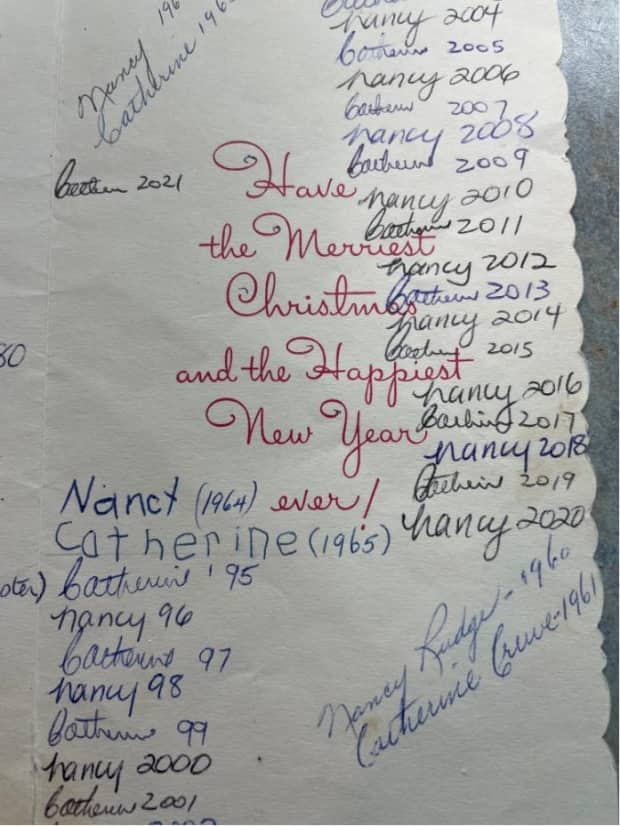 Nancy 196
Catherine 196
nancy 2004
Catherine 2005
nancy 2006
Catherine 2007
nancy 2008
Catherine 2009
nancy 2010
Catherine 2011
nancy 2012
Catherine 2013
nancy 2014
Catherine 2015
nancy 2016
Catherine 2017
nancy 2018
Catherine 2019
nancy 2020
Catherine 2021
Have
the Merriest
Christmas
and the Happiest
New Year
ever!
80
Nanct (1964)
Catherine (1965)
Catherine '95
nancy 96
Catherine 97
nancy 98
Catherine 99
nancy 2000
Catherine 2001
Nancy Rudge - 1960
Catherine Crewe - 1961